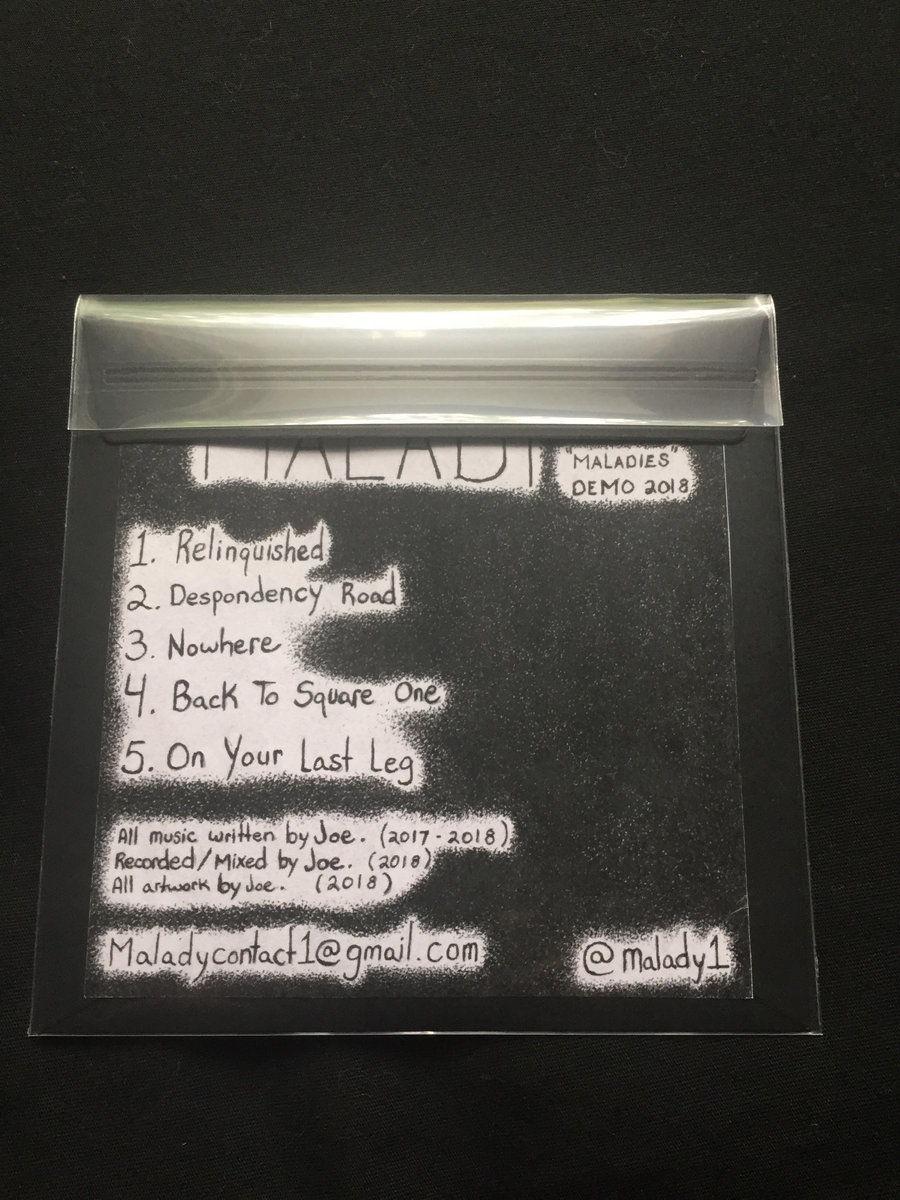 MALADY
MALADIES"
DEMO 2018
1. Relinquished
2. Despondency Road
3. Nowhere
4. Back To Square One
5. On Your Last Leg
All music written by Joe. (2017-2018)
Recorded/Mixed by Joe. (2018)
All artwork by Joe. (2018)
Maladycontact1@gmail.com
@malady1